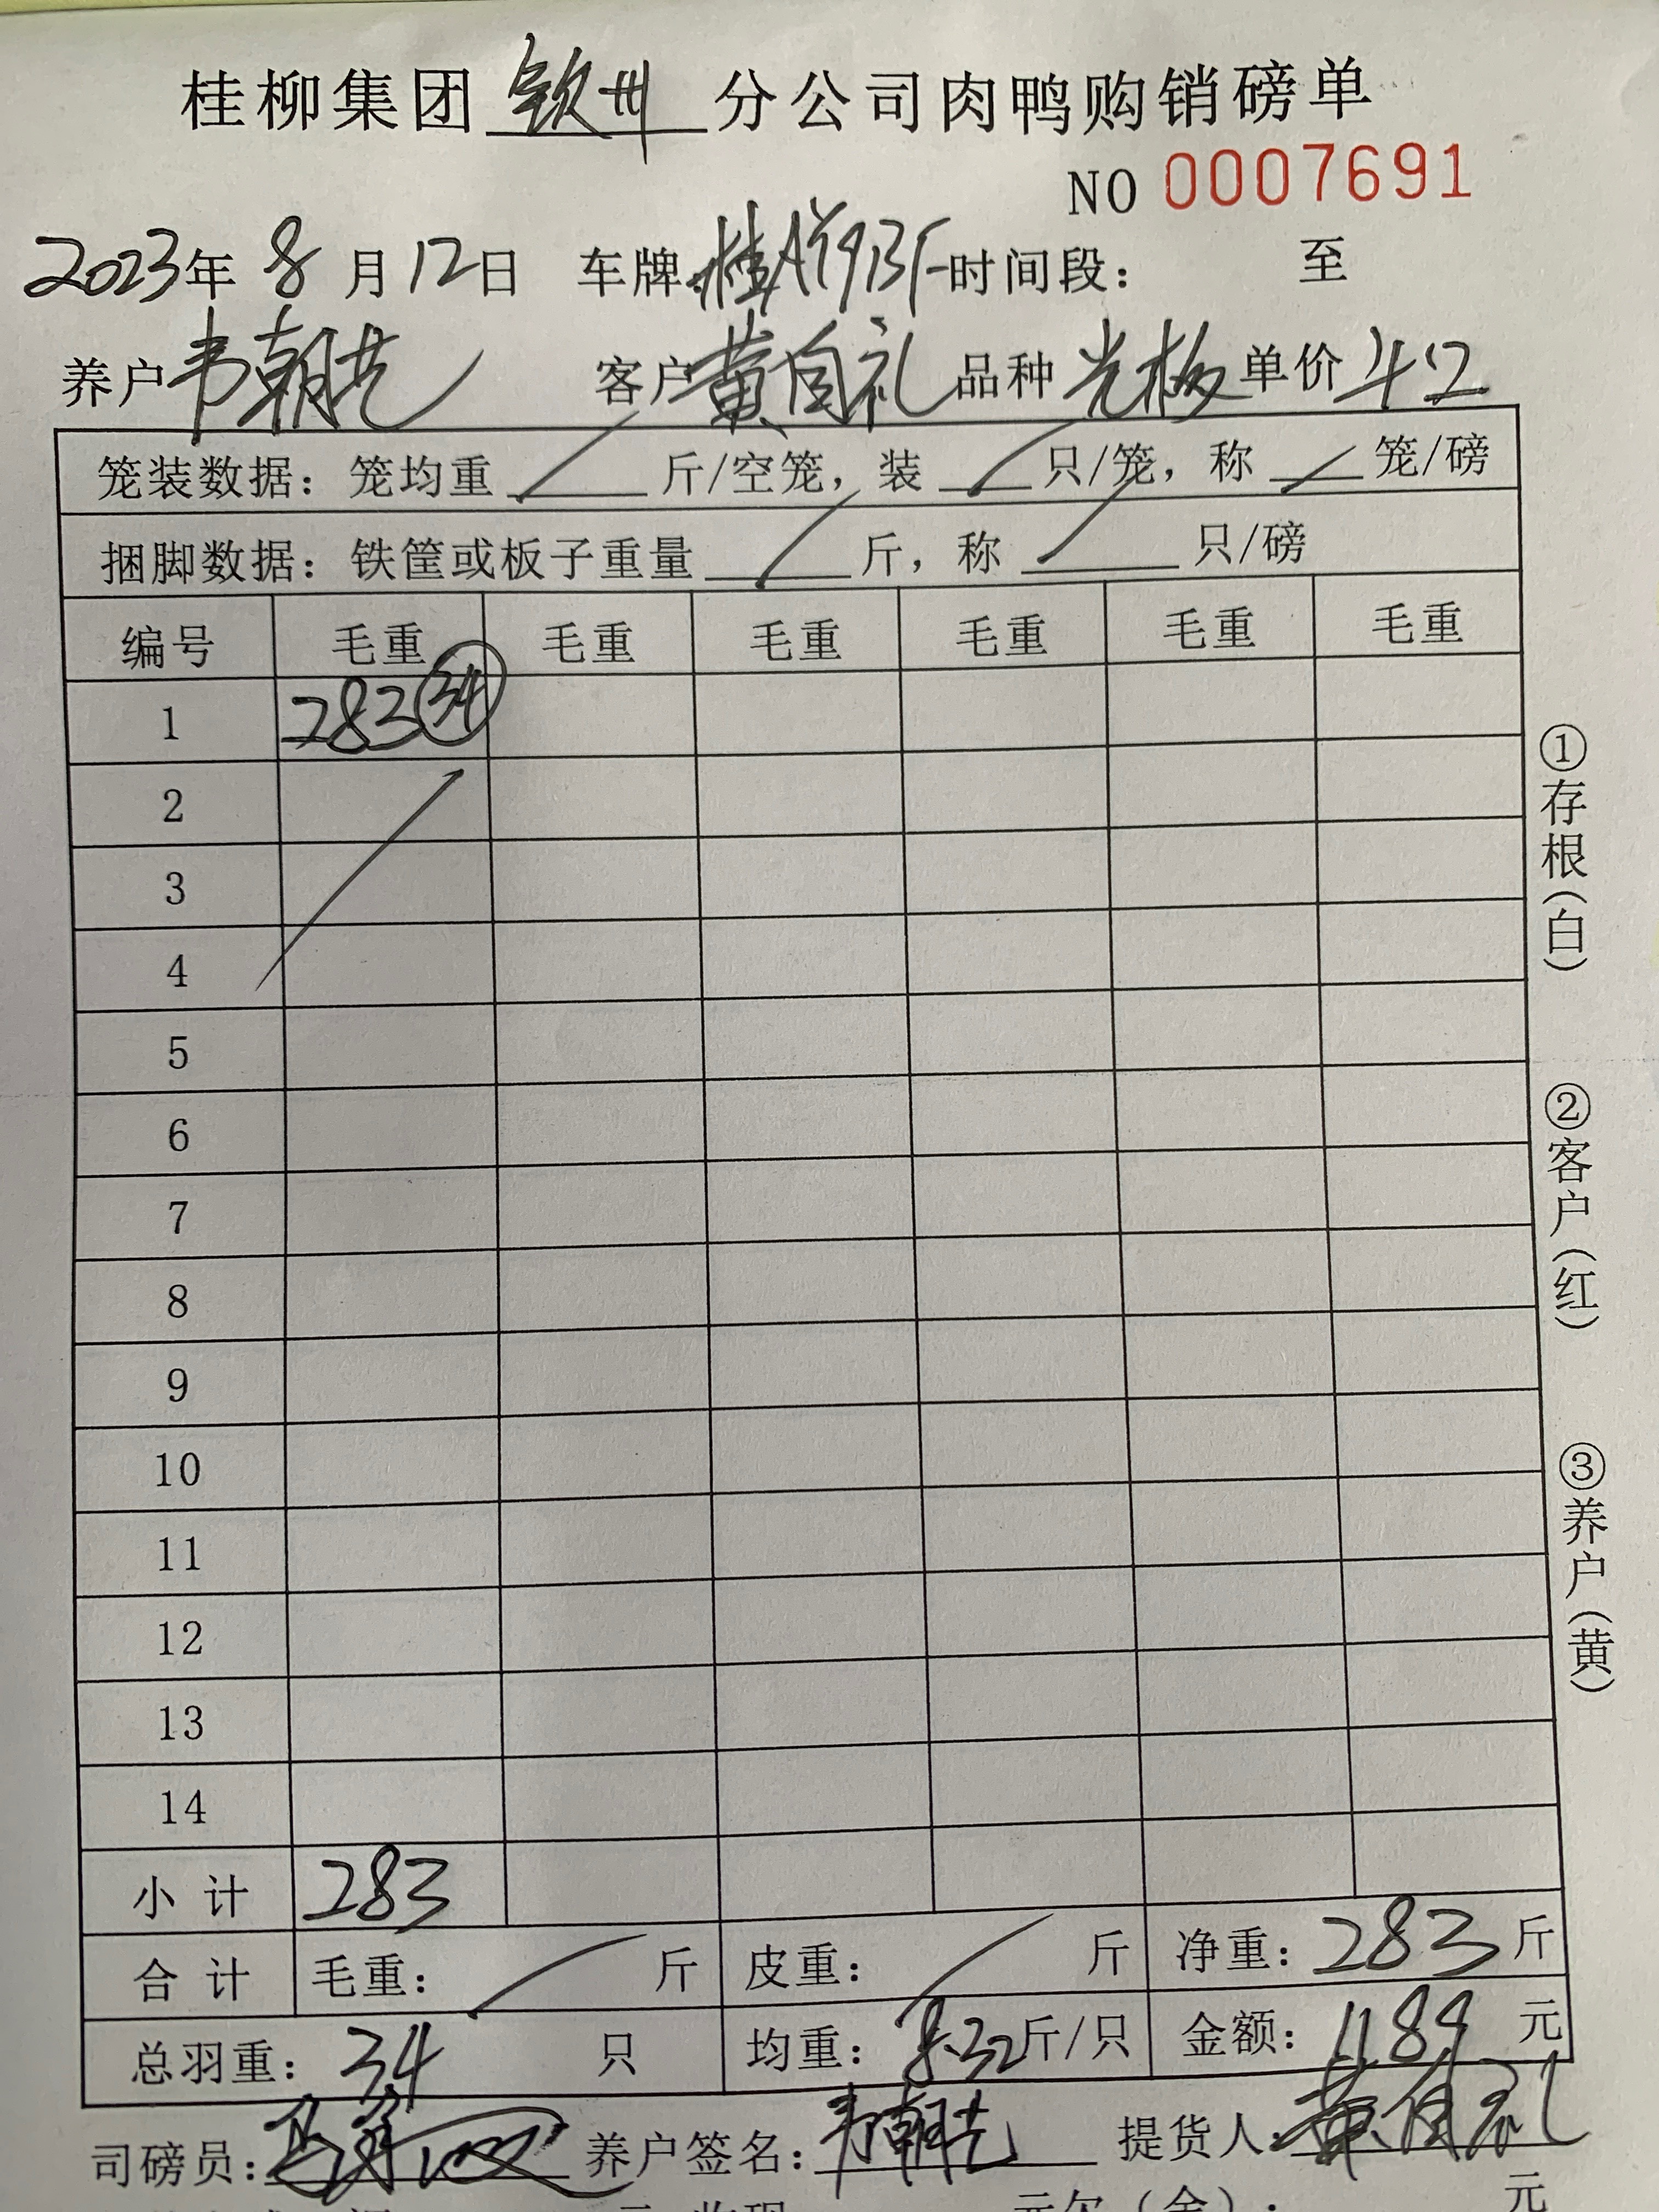 桂柳集团 钦州 分公司肉鸭购销磅单
NO 0007691
2023年 8 月 12日 车牌:桂AY93F 时间段: 至
养户 韦朝 客户 黄自礼 品种 光板 单价 4.2
笼装数据: 笼均重 斤/空笼, 装 只/笼, 称 笼/磅
捆脚数据: 铁筐或板子重量 斤, 称 只/磅
编号 毛重 毛重 毛重 毛重 毛重 毛重
1 283 34
2
3
4
5
6
7
8
9
10
11
12
13
14
小计 283
合计 毛重: 斤 皮重: 斤 净重: 283 斤
总羽重: 34 只 均重: 8.32斤/只 金额: 1189 元
司磅员: 养户签名: 韦朝 提货人: 黄自礼
元 收现 元欠(余): 元
①存根(白)
②客户(红)
③养户(黄)